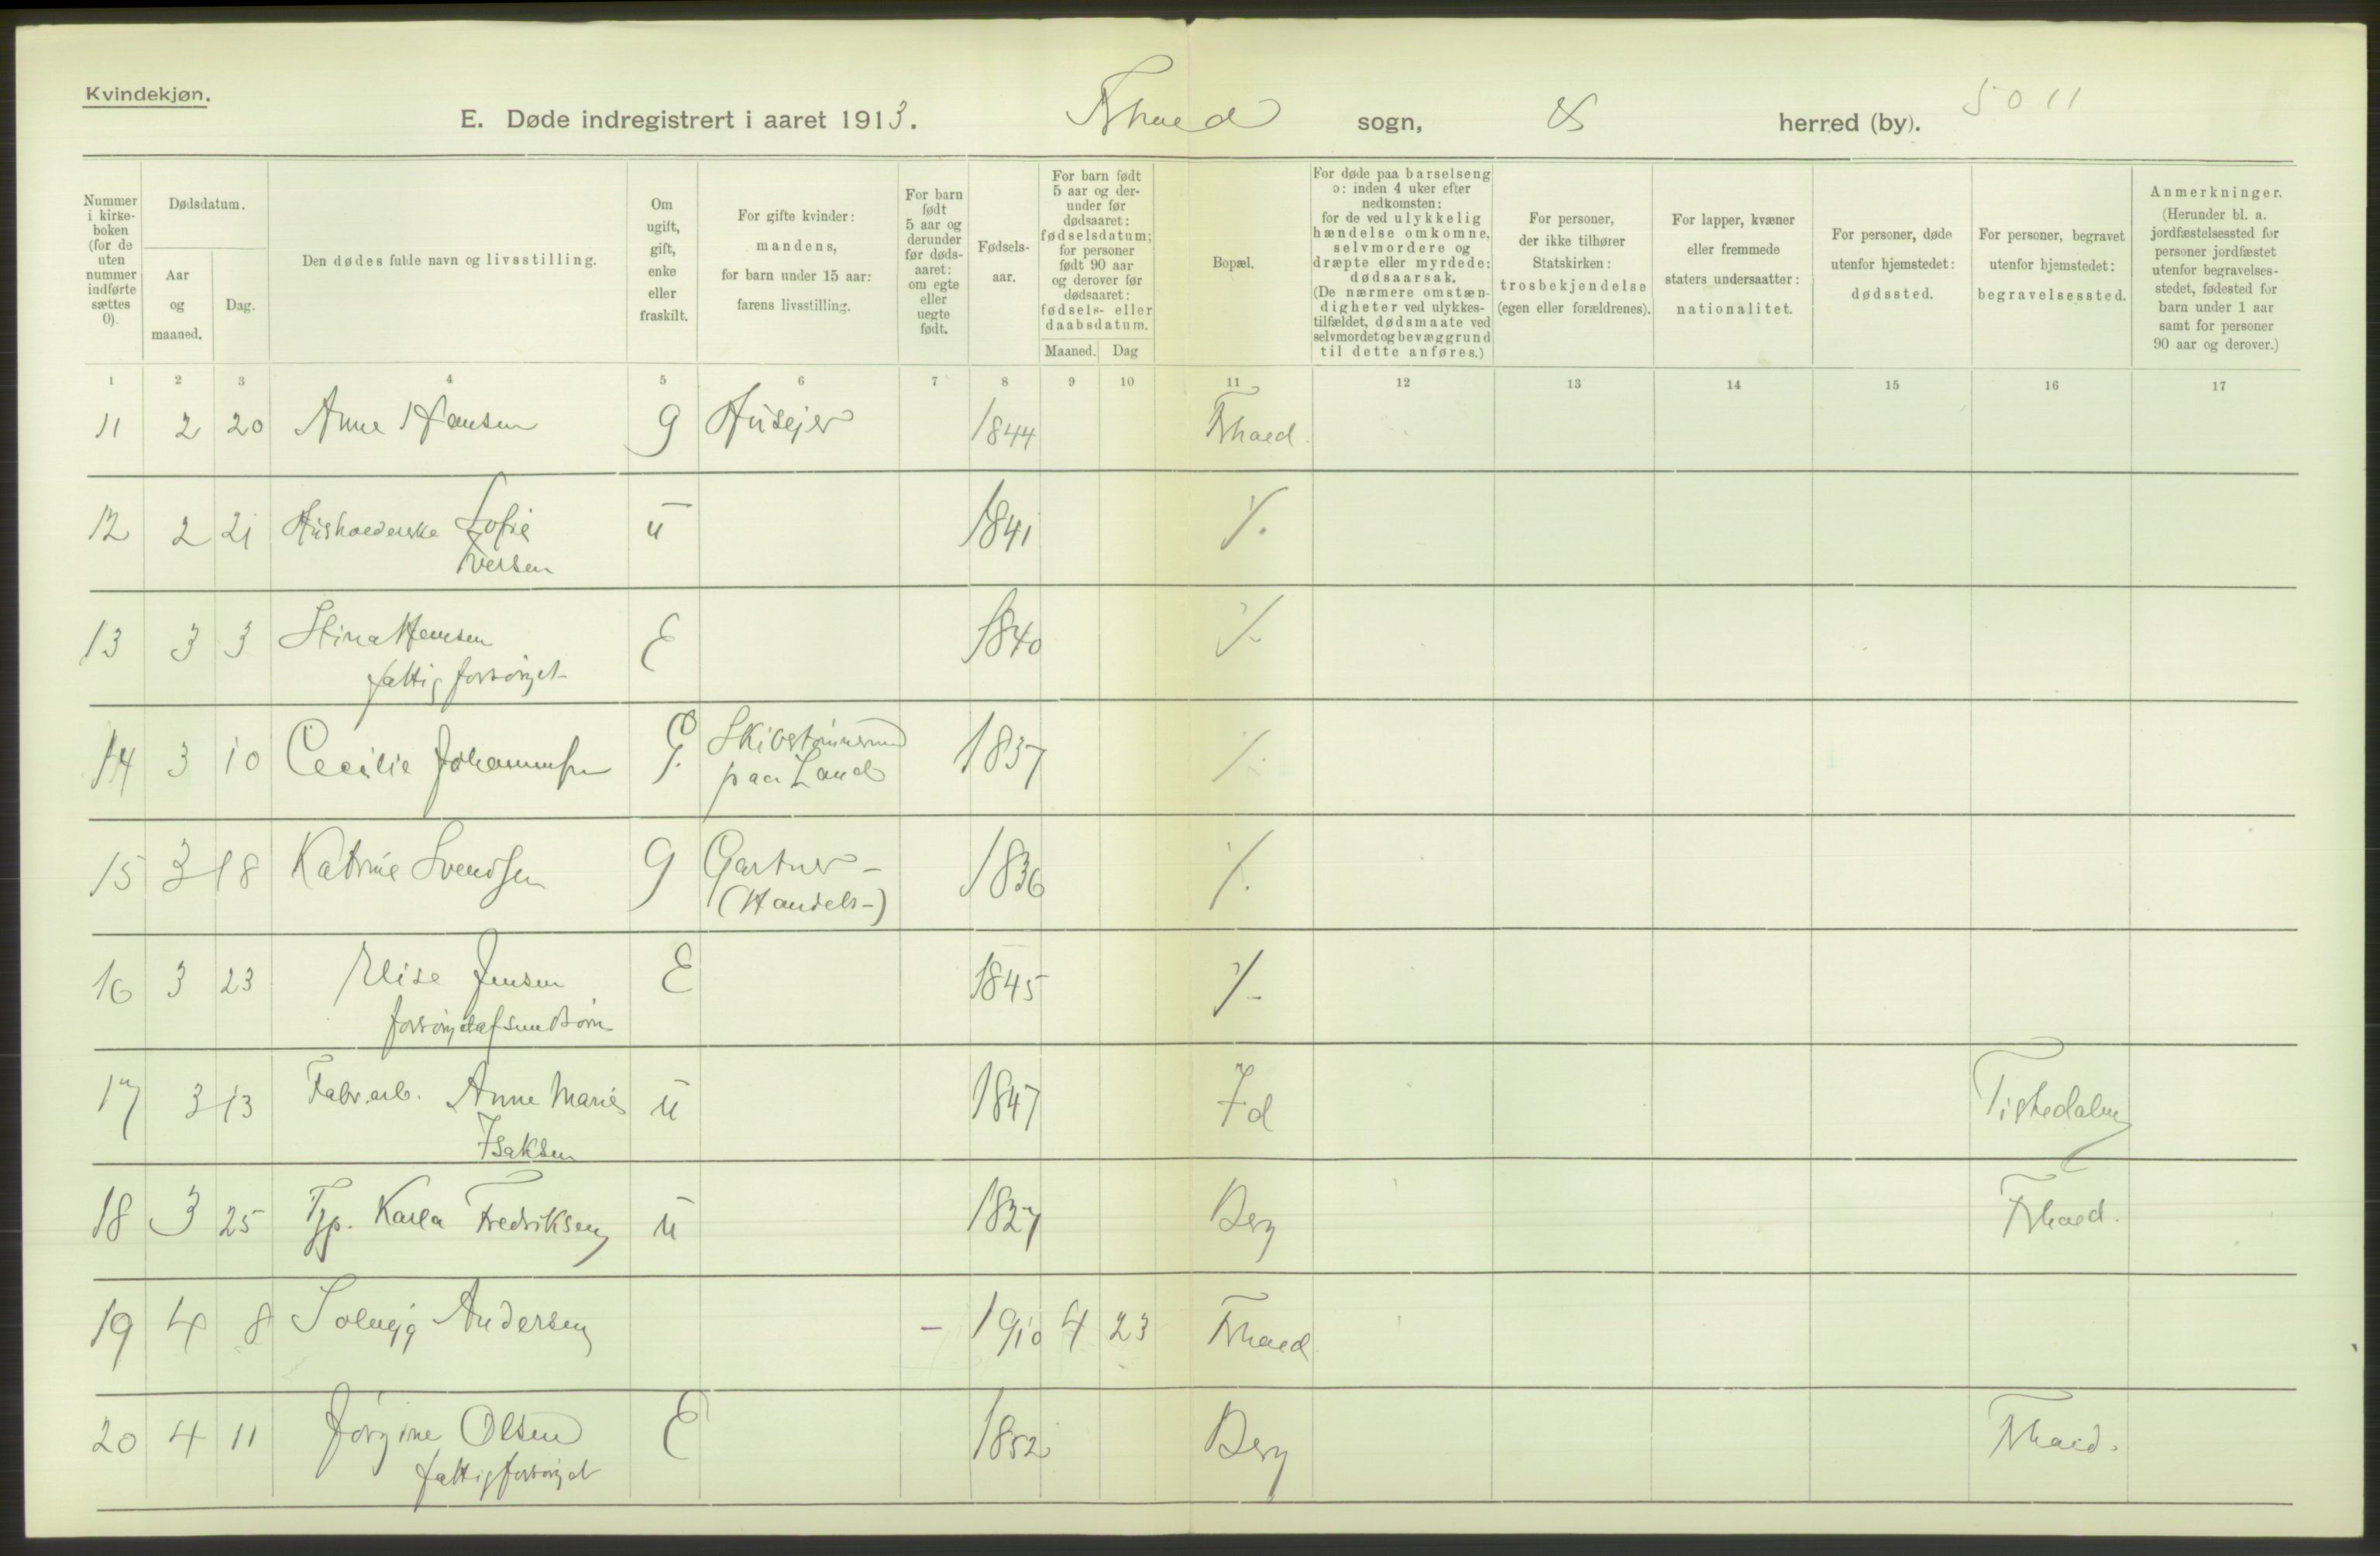 Kvindekjøn.
E. Døde indregistrert i aaret 1913. Frhald sogn, & herred (by). 5011
Nummer i kirke-boken (for de uten nummer indførte sættes 0).
Dødsdatum.
Aar og maaned.
Dag.
Den dødes fulde navn og livsstilling.
Om ugift, gift, enke eller fraskilt.
For gifte kvinder: mandens, for barn under 15 aar: farens livsstilling.
For barn født 5 aar og derunder før døds-aaret: om egte eller uegte født.
Fødsels-aar.
For barn født 5 aar og der-under før dødsaaret: fødselsdatum; for personer født 90 aar og derover før dødsaaret: fødsels- eller daabsdatum.
Maaned. Dag
Bopæl.
For døde paa barselseng ɔ: inden 4 uker efter nedkomsten: for de ved ulykkelig hændelse omkomne, selvmordere og dræpte eller myrdede: dødsaarsak. (De nærmere omstæn-digheter ved ulykkes-tilfældet, dødsmaate ved selvmordet og bevæggrund til dette anføres.)
For personer, der ikke tilhører Statskirken: trosbekjendelse (egen eller forældrenes).
For lapper, kvæner eller fremmede staters undersaatter: nationalitet.
For personer, døde utenfor hjemstedet: dødssted.
For personer, begravet utenfor hjemstedet: begravelsessted.
Anmerkninger. (Herunder bl. a. jordfæstelsessted for personer jordfæstet utenfor begravelses-stedet, fødested for barn under 1 aar samt for personer 90 aar og derover.)
1 2 3 4 5 6 7 8 9 10 11 12 13 14 15 16 17
11 2 20 Anne Hansen g Husejer 1844 Frhald.
12 2 21 Husholderske Sofie u 1841 ⁒
Iversen
13 3 3 Stina Hansen E 1840 ⁒
fattigforsörget
14 3 10 Cecilie Johannesen G. Skibstømmermd 1837 ⁒
paa Land
15 3 18 Katrine Svendsen g Gartner - 1836 ⁒
(Handels-)
16 3 23 Elise Jensen E 1845 ⁒
forsörget af sine Börn
17 3 13 Fabr.arb. Anne Marie u 1847 Id Tistedalen
Isaksen
18 3 25 Tjp. Karla Fredriksen u 1827 Berg Frhald.
19 4 8 Solveig Andersen - 1910 4 23 Frhald
20 4 11 Jörgine Olsen E 1852 Berg Frhald.
fattigforsörget